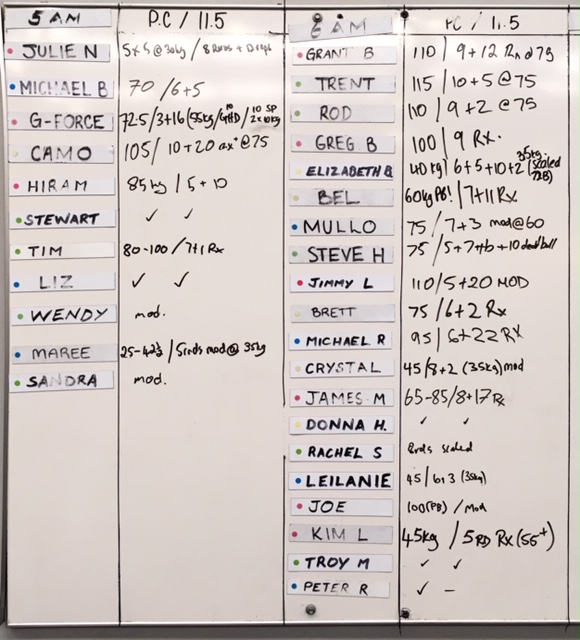 5 AM P.C / 11.5
JULIE N 5x5 @ 30kg / 8 Rnds +
MICHAEL B 70 / 6+5
G-FORCE 72.5 / 3+16 (55kg /
CAMO 105 / 10+20 @ 75
HIRAM 85kg / 5+10
STEWART ✓ ✓
TIM 80-100 / 7+1 Rx
LIZ ✓ ✓
WENDY mod.
MAREE 25-42½ / 5rnds mod @ 35kg
SANDRA mod.
6 AM PC / 11.5
GRANT B 110 / 9+12
TRENT 115 / 10+5 @ 75
ROD 110 / 9+2 @ 75
GREG B 100 / 9 Rx.
ELIZABETH B 40kg / 6+5+10+2 (35kg. scaled
BEL 60kg PB! / 7+11 Rx
MULLO 75 / 7+3 mod @ 60
STEVE H 75 / 5+7+6+10 deadball
JIMMY L 110 / 5+20 MOD
BRETT 75 / 6+2 Rx
MICHAEL R 95 / 6+22 RX
CRYSTAL 45 / 8+2 (35kg) mod
JAMES M 65-85 / 8+17 Rx
DONNA H. ✓ ✓
RACHEL S 8rds scaled
LEILANIE 45 / (35kg)
JOE 100 (PB) / Mod
KIM L 45kg / 5 RD Rx (55+)
TROY M ✓ ✓
PETER R ✓ –